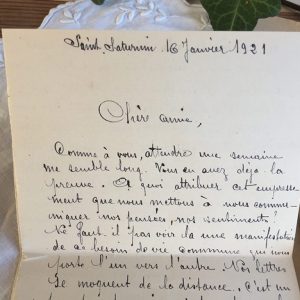 Saint Saturnin 16 Janvier 1921
Chère amie,
Comme à vous, attendre une semaine
me semble long. Vous en avez déjà la
preuve. A quoi attribuer cet empresse
ment que nous mettons à nous commu-
niquer nos pensées, nos sentiments?
Ne faut-il pas voir là une manifestation
de ce besoin de vie commune qui nous
porte l'un vers l'autre. Nos lettres
se moquent de la distance. C'est un